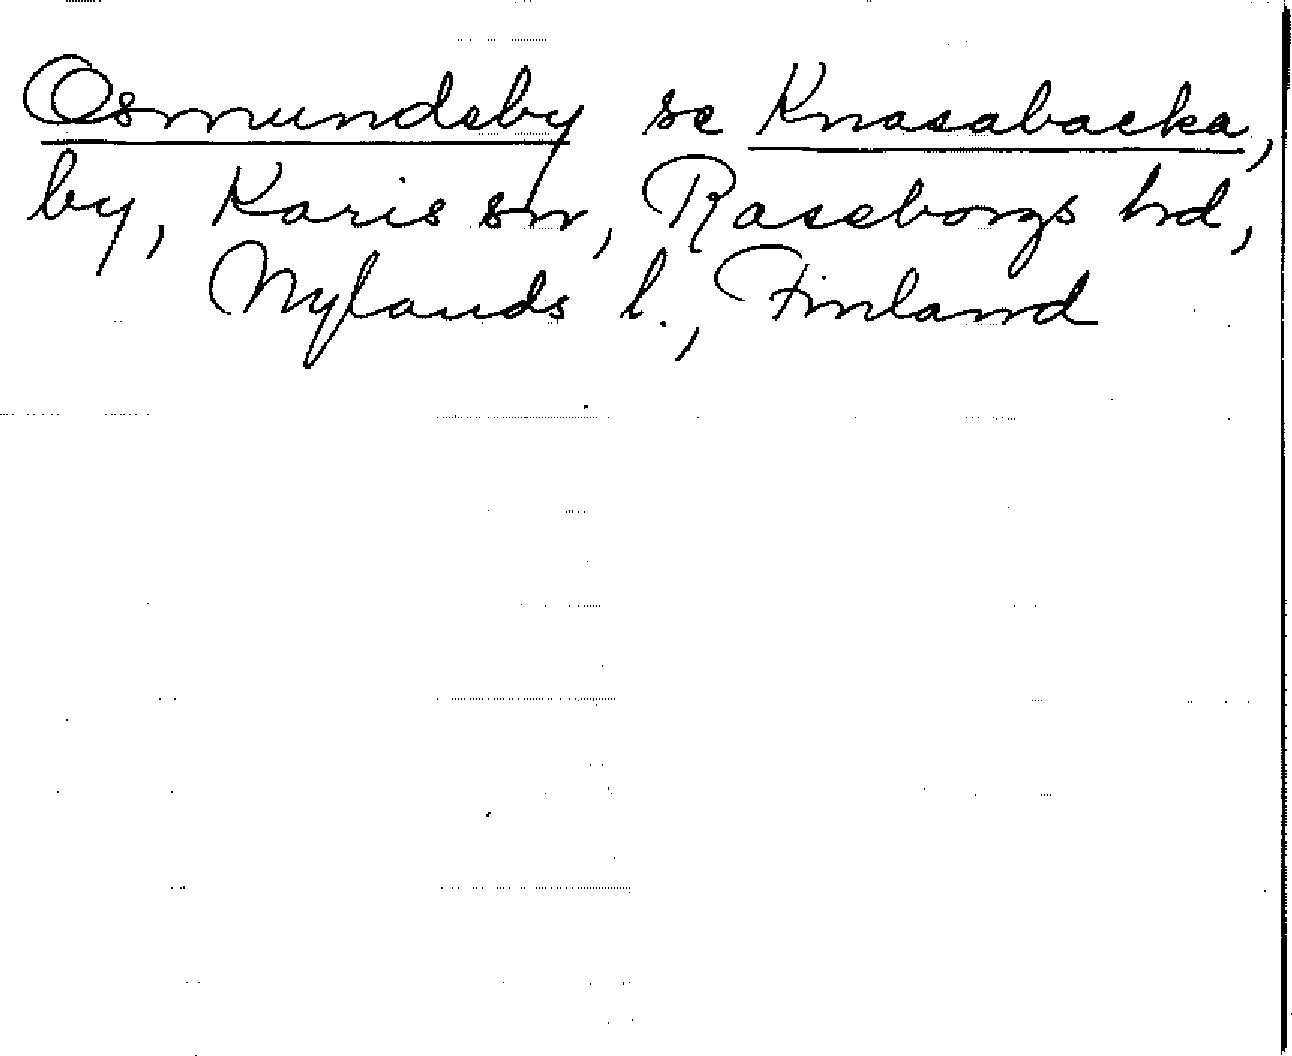 Osmundsby se Knasabacka,
by, Karis sn, Raseborgs hrd,
Nylands l., Finland